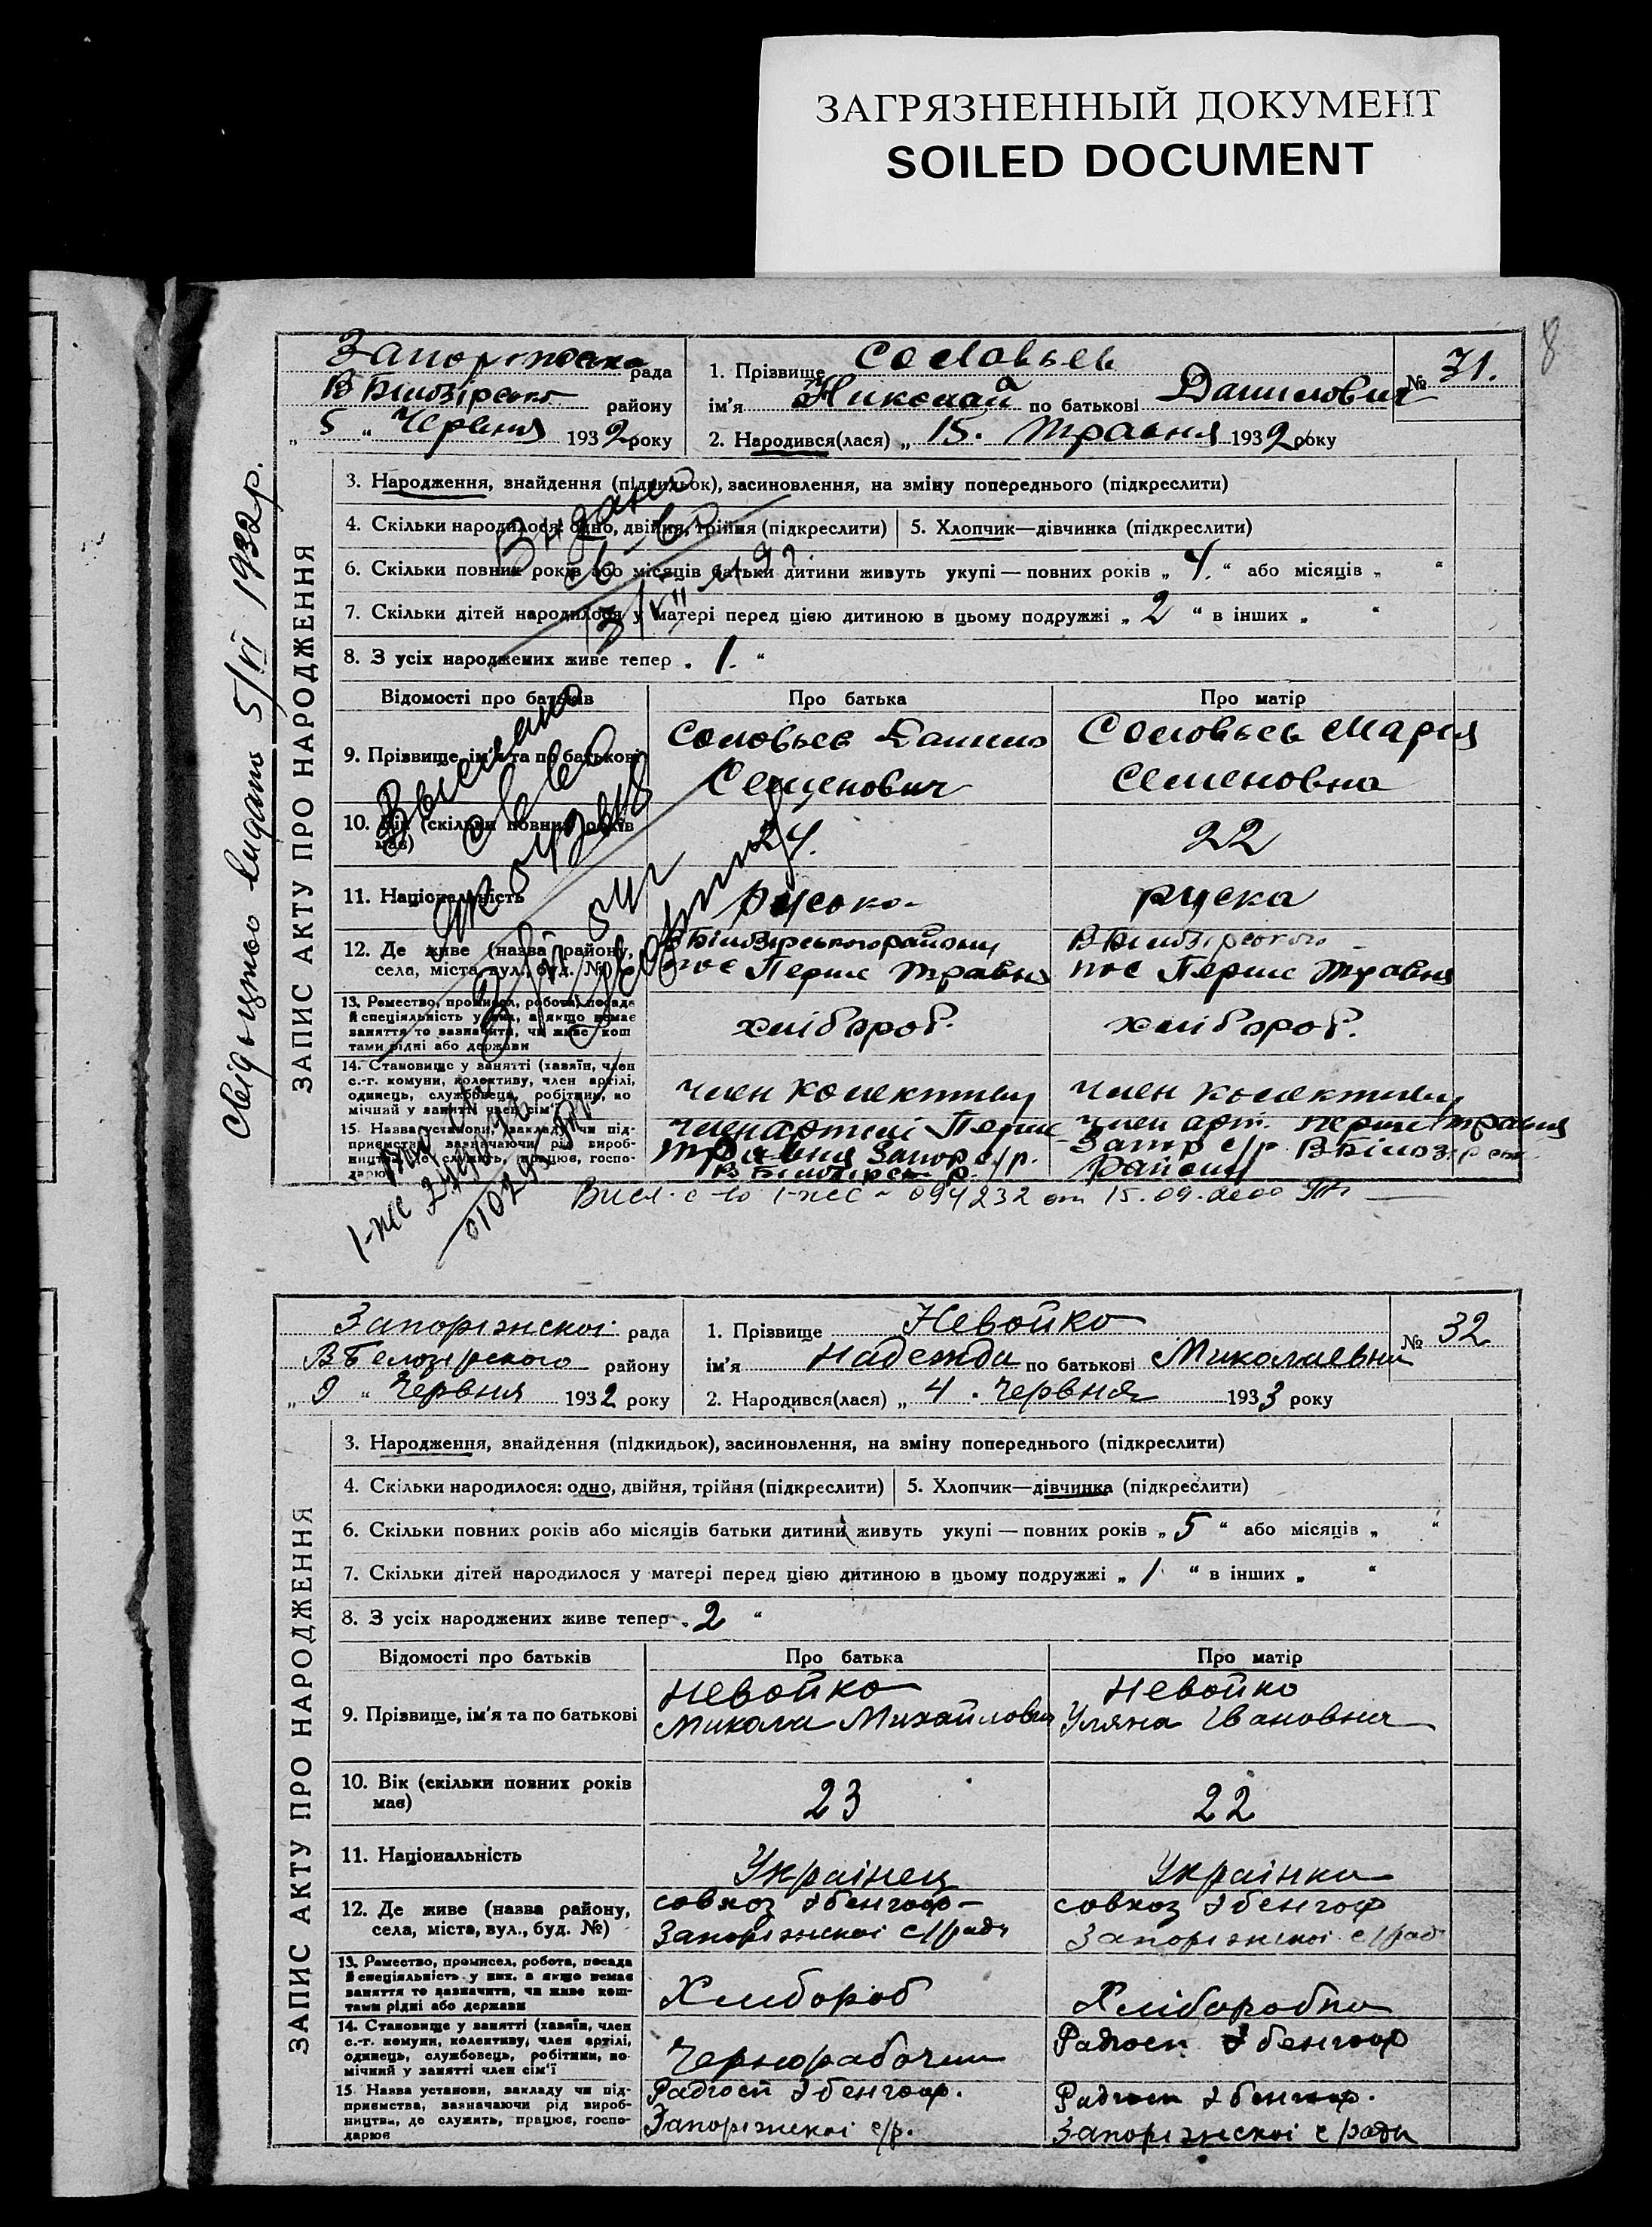 ЗАГРЯЗНЕННЫЙ ДОКУМЕНТ
SOILED DOCUMENT
8
Свідоцтво видано 5/VI 1932 р.
ЗАПИС АКТУ ПРО НАРОДЖЕННЯ
рада
В Білозірсько району
„ 5 “ Червня 1932 року
1. Прізвище Соловьев
ім'я Николай по батькові Данилович
№ 31.
2. Народився(лася) „ 15. Травня 1932 року
3. Народження, знайдення (підкидьок), засиновлення, на зміну попереднього (підкреслити)
4. Скільки народилося: одно, двійня, трійня (підкреслити)
5. Хлопчик—дівчинка (підкреслити)
6. Скільки повних років або місяців батьки дитини живуть укупі — повних років „ 4. “ або місяців „ “
7. Скільки дітей народилося у матері перед цією дитиною в цьому подружжі „ 2 “ в інших „ “
8. З усіх народжених живе тепер „ 1. “
Відомості про батьків
Про батька
Про матір
9. Прізвище, ім'я та по батькові
Соловьев Данило
Семенович
Соловьев Мария
Семеновна
10. Вік (скільки повних років має)
24.
22
11. Національність
руска
12. Де живе (назва району,
села, міста, вул., буд. №)
В Білозірського району
пос Перше Травня
В Білозірского
пос Перше Травня
13. Ремество, промисел, робота, посада
й спеціяльність у них, а якщо немає
заняття то зазначити, чи живе кош-
тами рідні або держави
хлібороб.
хлібороб.
14. Становище у занятті (хазяїн, член
с.-г. комуни, колективу, член артілі,
одинець, службовець, робітник, по-
мічний у занятті член сім'ї
член колективу
член колективу
15. Назва установи, закладу чи під-
приємства, зазначаючи рід вироб-
ництва, де служить, працює, госпо-
дарює
член артілі Перше
Травня Запор с/р.
В Білозірськ р.
член арт. перше травня
Запор с/р В Білозірск
району
094232 от 15.09.2000
ЗАПИС АКТУ ПРО НАРОДЖЕННЯ
Запоріжскоі рада
В Белозірского району
„ 9 “ Червня 1932 року
1. Прізвище Невойко
ім'я Надежда по батькові Миколаевна
№ 32
2. Народився(лася) „ 4. Червня 1933 року
3. Народження, знайдення (підкидьок), засиновлення, на зміну попереднього (підкреслити)
4. Скільки народилося: одно, двійня, трійня (підкреслити)
5. Хлопчик—дівчинка (підкреслити)
6. Скільки повних років або місяців батьки дитини живуть укупі — повних років „ 5 “ або місяців „ “
7. Скільки дітей народилося у матері перед цією дитиною в цьому подружжі „ 1 “ в інших „ “
8. З усіх народжених живе тепер „ 2 “
Відомості про батьків
Про батька
Про матір
9. Прізвище, ім'я та по батькові
Невойко
Микола Михайлович
Невойко
Уляна Івановна
10. Вік (скільки повних років
має)
23
22
11. Національність
Украінец
Украінка
12. Де живе (назва району,
села, міста, вул., буд. №)
совхоз Эбенгоф
Запоріжскоі с/ради
совхоз Эбенгоф
Запоріжскоі с/рад
13. Ремество, промисел, робота, посада
й спеціяльність у них, а якщо немає
заняття то зазначити, чи живе кош-
тами рідні або держави
Хлибороб
Хліборобка
14. Становище у занятті (хазяїн, член
с.-г. комуни, колективу, член артілі,
одинець, службовець, робітник, по-
мічний у занятті член сім'ї
Чернорабочий
Радгосп Эбенгоф
15. Назва установи, закладу чи під-
приємства, зазначаючи рід вироб-
ництва, де служить, працює, госпо-
дарює
Радгосп Эбенгоф.
Запоріжскоі с/р.
Радгосп Эбенгоф.
Запоріжскоі с/ради